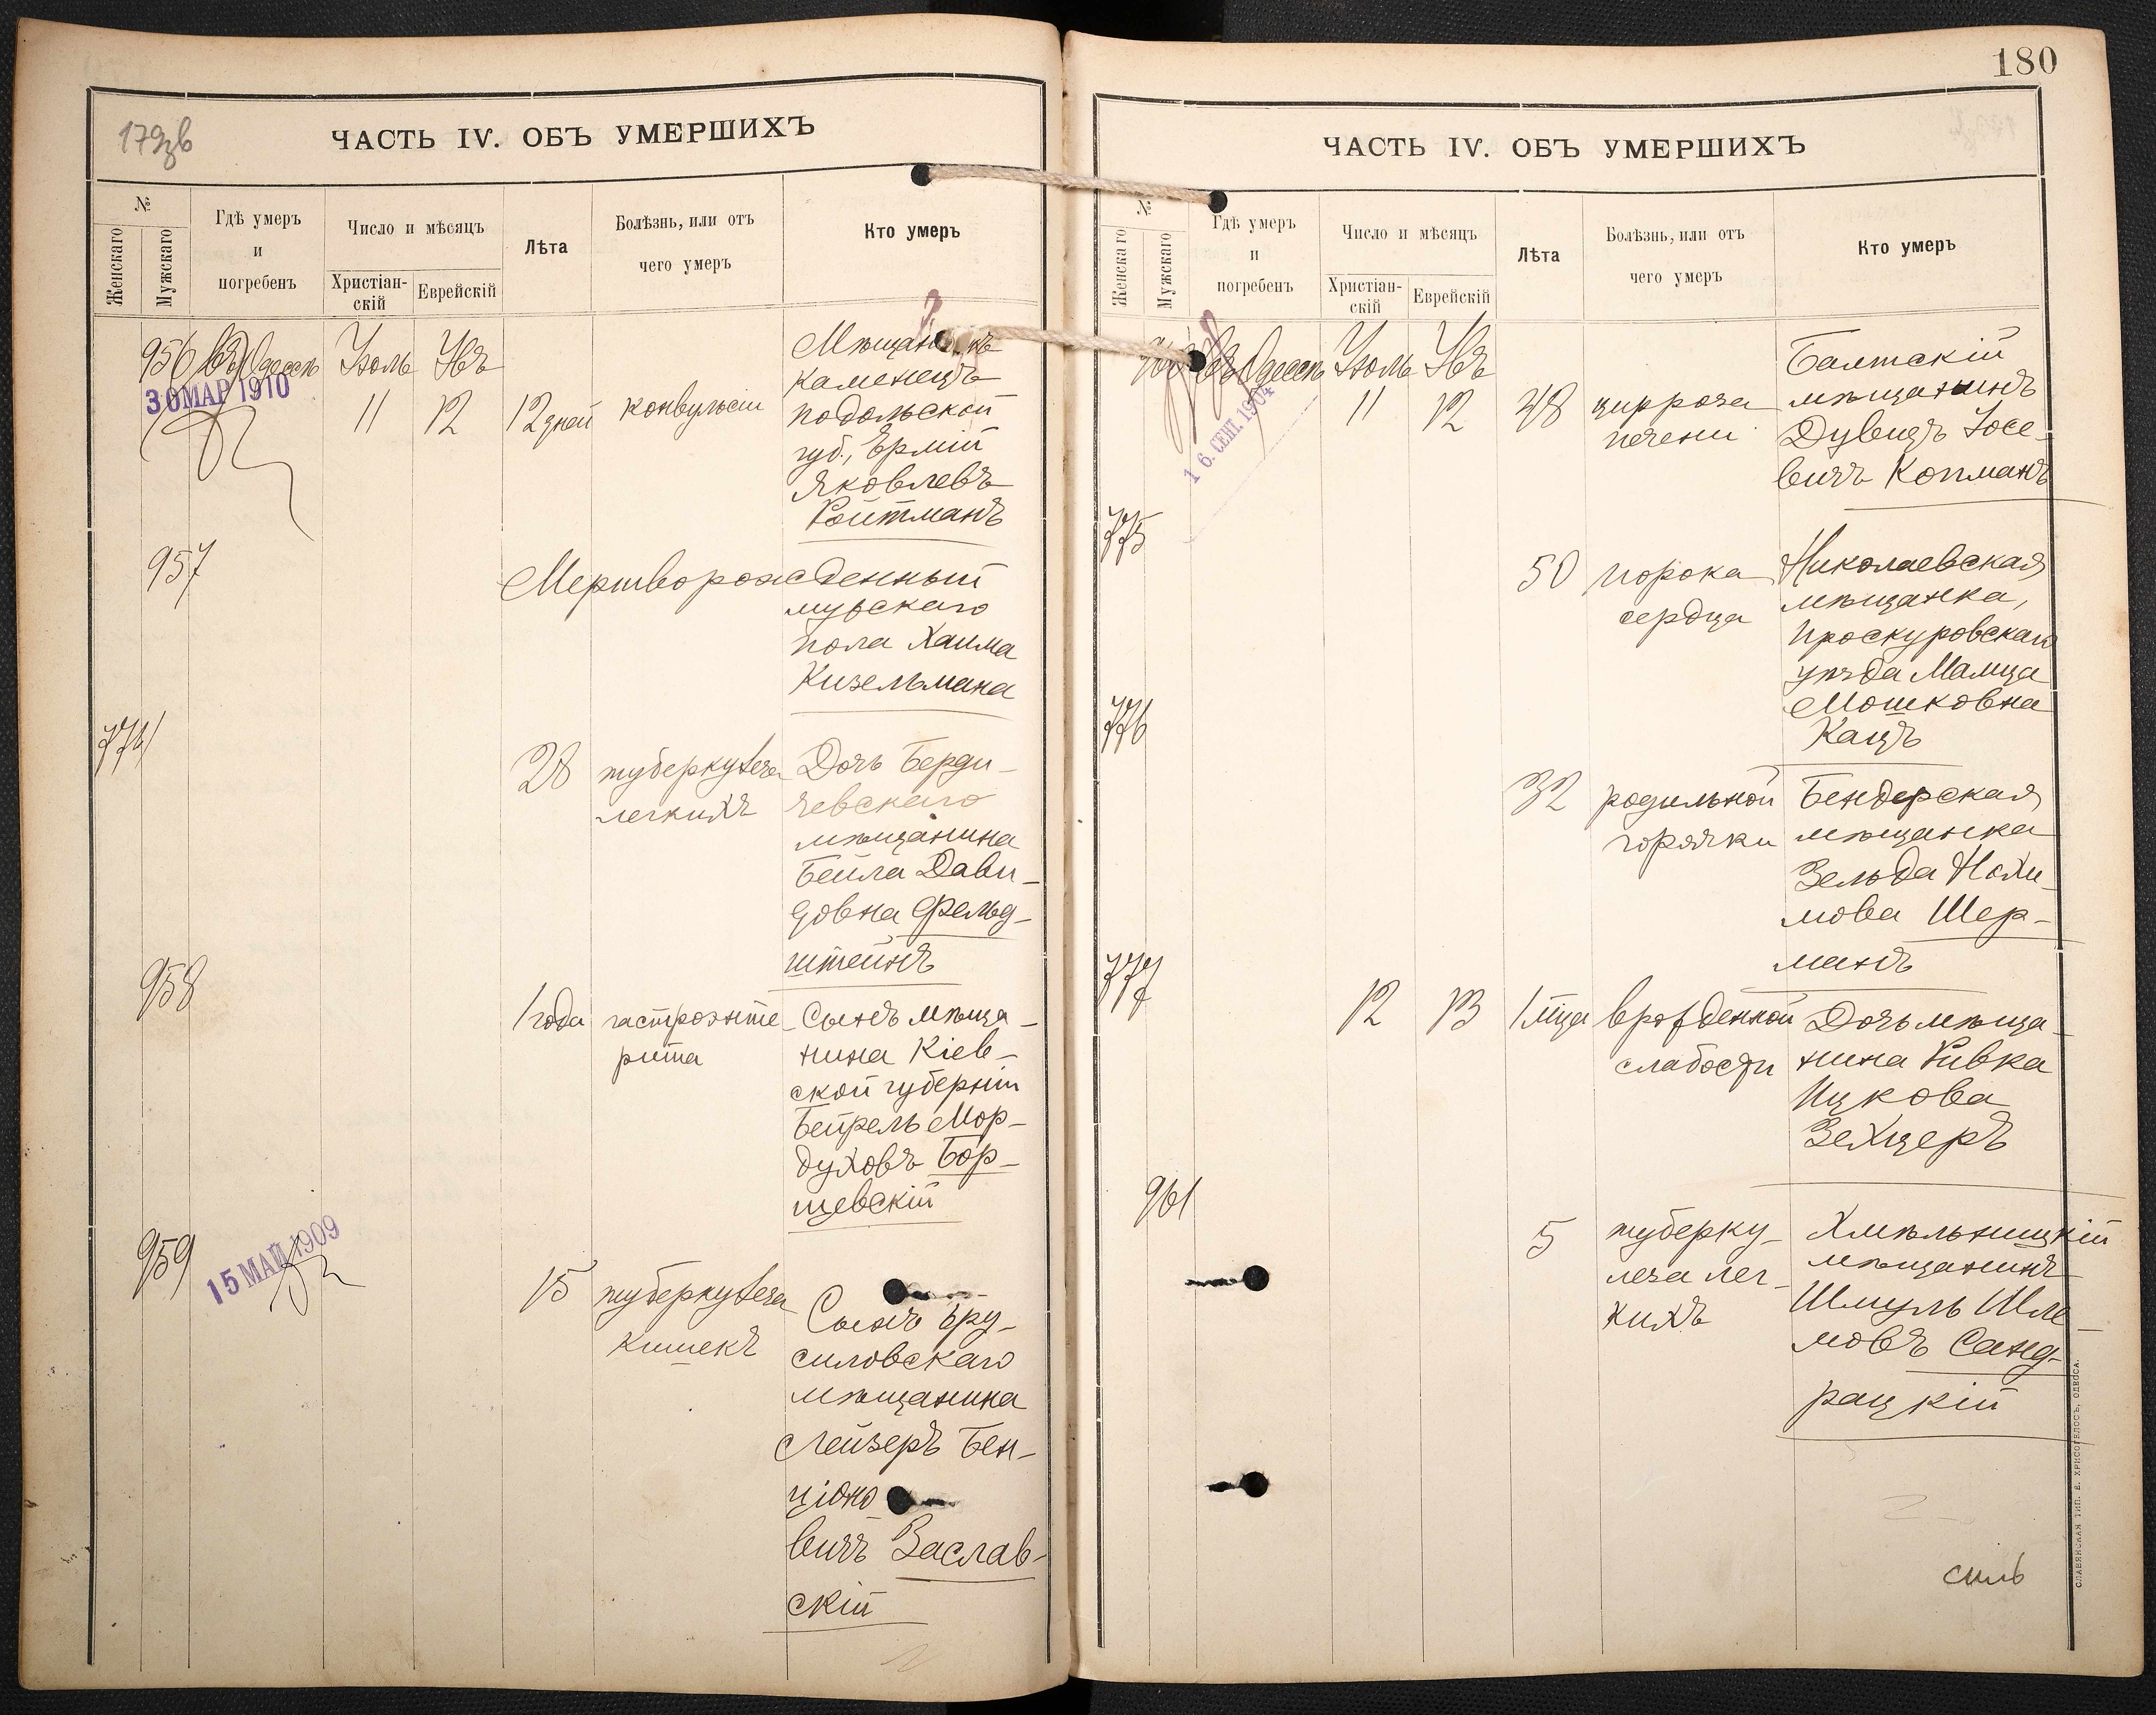 179об
ЧАСТЬ IV. ОБЪ УМЕРШИХЪ
№
Женскаго
Мужскаго
Гдѣ умеръ
и
погребенъ
Число и мѣсяцъ
Христіан-
скій
Еврейскій
Лѣта
Болѣзнь, или отъ
чего умеръ
Кто умеръ
956 въ Одессѣ Іюль Ювъ
30 МАР 1910
11 12 12 дней конвульсіи
Мѣщанинъ
Каменецъ
подольской
губ.,
Яковлевъ
Ройтманъ
957
Мертворожденный
мужскаго
пола Хаима
Кизельмана
774
28 туберкулеза
легкихъ
Дочь Берди-
чевскаго
мѣщанина
Бейла Дави-
довна Фельд-
штейнъ
958
1 года гастроэнте-
рита
Сынъ мѣща-
нина Кіев-
ской губерніи
Бейрель Мор-
духовъ Бор-
щевскій
959
15 МАЙ 1909
15 туберкулеза
кишекъ
Сынъ Бру-
силовскаго
мѣщанина
Лейзеръ Бен-
ціоно
вичъ Заслав-
скій
180
ЧАСТЬ IV. ОБЪ УМЕРШИХЪ
№
Женскаго
Мужскаго
Гдѣ умеръ
и
погребенъ
Число и мѣсяцъ
Христіан-
скій
Еврейскій
Лѣта
Болѣзнь, или отъ
чего умеръ
Кто умеръ
960 въ Одессѣ Іюль Ювъ
16. СЕНТ. 1904
11 12 48 цирроза
печени
Балтскій
мѣщанинъ
Дувидъ Іосе-
вичъ Копманъ
775
50 порока
сердца
Николаевская
мѣщанка,
Проскуровскаго
уѣзда Малца
Мошковна
Кацъ
776
32 родильной
горячки
Бендерская
мѣщанка
Зельда Нахи-
мова Шер-
манъ
777
12 13 1 мца врожденной
слабости
Дочь мѣща-
нина Ривка
Ицкова
Зехцеръ
961
5 туберку-
леза лег-
кихъ
Хмѣльницкій
мѣщанинъ
Шмуль Шле-
мовъ Санд-
рацкій
СЛАВЯНСКАЯ ТИП. Е. ХРИСОГЕЛОСЪ, ОДЕССА.